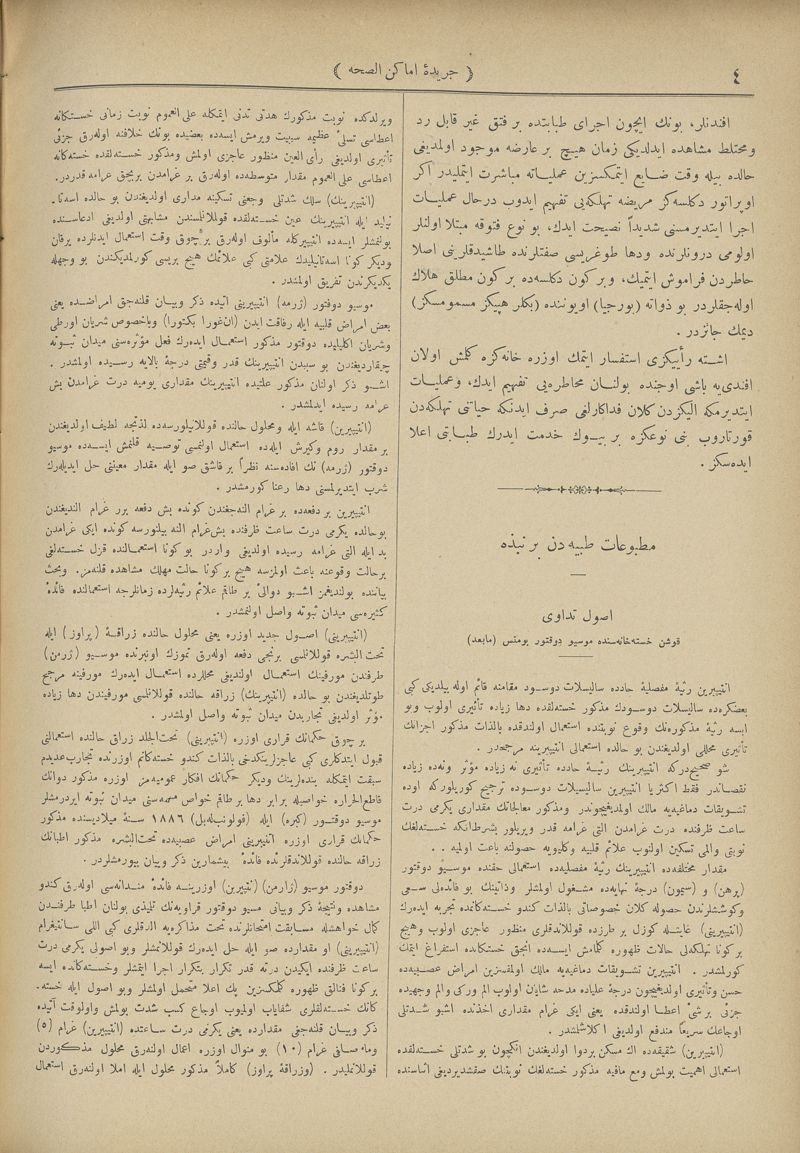 ٤
﴿ جریدۀ اماکن الصحه ﴾
افندنلر، بونك ایچون اجرای طبابتده بر فتق غیر قابل رد
ومختلط مشاهده ایدلدیکی زمان هیچ بر عارضه موجود اولمدیغی
حالده بیله وقت ضایع ایتمکسزین عملیاته مباشرت ایتملیدر اکر
اوپراتور دکلسه کز مریضه تهلکه‌یی تفهیم ایدوب درحال عملیات
اجرا ایتدیرمسنی شدیداً نصیحت ایدك، بو نوع فتوقه مبتلا اولنلر
اولومی درونلرنده ودها طوغریسی صفتلرنده طاشیدقلرینی اصلا
خاطردن فراموش ایتمیك، وبرکون دکلسه‌ده برکون مطلق هلاك
اوله‌جقلردر بو ذواته (بورجیا) اویوننده (بکلر هپیکز مسمومسکز)
دیمك جائزدر .
اشته رأییکزی استفسار ایتمك اوزره خانه‌کزه کلمش اولان
افندی‌یه باشی اوجنده بولنان مخاطره‌یی تفهیم ایدك، وعملیات
ایتدیرمکه الیکزدن کلان فداکارلغی صرف ایدنکه حیاتی تهلکه‌دن
قورتاروب بنی نوعکزه بر بیوك خدمت ایدرك طبابتی اعلا
ایده‌سکز .
مطبوعات طبیه‌دن بر نبذه
اصول تداوی
قوشن خسته‌خانه‌سنده موسیو دوقتور بومنس (مابعد)
انتیپیرین رثیۀ مفصلیۀ حادده سالیسلات دوسود مقامنه قائم اوله بیلدیکی کبی
بعضکره‌ده سالیسلات دوسودك مذکور خسته‌لقده دها زیاده تأثیری اولوب وبو
ایسه رثیۀ مذکوره‌نك وقوع نوبتنده استعمال اولندقده بالذات مذکور اجزانك
تأثیری محللی اولدیغندن بو حالده استعمالی انتیپیرینه مرجحدر .
شو صحیحدرکه انتیپیرینك رثیۀ حادده تأثیری نه زیاده مؤثر ونه‌ده زیاده
نقصاندر فقط اکثریا انتیپیرین سالیسلات دوسوده ترجیح کوریلورکه اوده
تشویقات دماغیه‌یه مالك اولمدیغیچوندر ومذکور معالجاتك مقداری یکرمی درت
ساعت ظرفنده درت غرامدن التی غرامه قدر ویریلور بشرطانکه خسته‌لغك
نوبتی والمی تسکین اولنوب علائم قلبیه وکلیویه حصولنه باعث اولمیه ..
مقدار مختلفه‌ده انتیپیرینك رثیۀ مفصلیه‌ده استعمالی حقنده موسیو دوقتور
(پرهن) و (سیمون) درجۀ نهایه‌ده مشغول اولمشلر وذاتینك بو فائده‌لی سعی
وکوششلرندن حصوله کلان خصوصاتی بالذات کندو خسته‌کانمده تجربه ایده‌رك
(انتیپیرینی) غایتله کوزل بر طرزده قوللاندقلری منظور عاجزی اولوب وهیچ
برکونا تهلکه‌لی حالات ظهوره کلمامش ایسه‌ده انجق خستکانده استفراغ ایتمك
کورلمشدر . انتیپیرین تشویقات دماغیه‌یه مالك اولمقسزین امراض عصبیه‌ده
حسن وتأثیری اولدیغیچون درجۀ علیاده مدحه شایان اولوب الم ورکی والم وجهیده
جزئی بر شی اعطا اولندقده یعنی ایکی غرام مقداری اخذنده اشبو شدتلی
اوجاعك سریعاً مندفع اولدیغی اکلاشلمشدر .
(انتیپیرین) شقیقه‌ده اك مسکن بردوا اولدیغندن انکچون بو شدتلی خسته‌لقده
استعمالی اهمیت بولمش ومع مافیه مذکور خسته‌لغك نوبتنك صقشدیردیغی اثناسنده
ویرلدکده نوبت مذکورك هدتی تدنی ایتمکله علی العموم نوبت زمانی خستکانه
اعطاسی تسلئ عظیمه سبیت ویرمش ایسه‌ده بعضیده بونك خلافنه اوله‌رق جزئی
تأثیری اولدیغی رأی العین منظور عاجزی اولمش ومذکور خسته‌لقده خسته‌کانه
اعطاسی علی العموم مقدار متوسطه‌ده اوله‌رق بر غرامدن بریچق غرامه قدردر.
(انتیپیرینك) سلك شدتلی وجعنی تسکینه مداری اولدیغندن بو حالده اسه‌تا-
نیلید ایله انتیپیرینك عین خسته‌لقده قوللانلسندن مشابهتی اولدیغی ادعاسنده
بولنمشلر ایسه‌ده انتیپیرکله مألوف اوله‌رق برچوق وقت استعمال ایدنلرده یرقان
ودیکر کونا اسه‌تانیلیدك علامتی کبی علائمك هیچ بریسی کورلمدیکندن بو وجهله
یکدیکرندن تفریق اولمشدر .
موسیو دوقتور (ژرمه) انتیپیرینی اتیده ذکر وبیان قلنه‌جق امراضده یعنی
بعض امراض قلبیه ایله رفاقت ایدن (انغورا بکتورا) وباخصوص شریان اورطی
وشریان اکلیلیده دوقتور مذکور استعمال ایده‌رك فعل مؤثره‌سنی میدان ثبوته
چیقاردیغندن بو سبیدن انتیپیرینك قدر وقیمتی درجۀ بالایه رسیده اولمشدر .
اشبو ذکر اولنان مذکور علتیده انتیپیرینك مقداری یومیه درت غرامدن بش
غرامه رسیده ایدلمشدر .
(انتیپیرین) قاشه ایله ومحلول حالنده قوللانیلورسه‌ده لذتجه لطیف اولدیغندن
بر مقدار روم وکیرش ایله‌ده استعمال اولنمسی توصیه قلنمش ایسه‌ده موسیو
دوقتور (ژرمه) نك افاده‌سنه نظراً بر قاشق صو ایله مقدار معینی حل ایدیله‌رك
شرب ایتدیرلمسی دها رعنا کورمشدر .
انتیپیرین بر دفعه‌ده بر غرام النه‌جغندن کونده بش دفعه برر غرام النديغندن
بوحالده یکرمی درت ساعت ظرفنده بش‌غرام النه بیلنورسه کونده ایکی غرامدن
بد ایله التی غرامه رسیده اولدیغی واردر بو کونا استعمالنده قزل خسته‌لغی
برحالت وقوعنه باعث اولمزسه هیچ برکونا حالت مهلك مشاهده قلنه‌مز. وبحث
بیاننده بولندیغمز اشبو دوائی بر طاقم علائم رئیه‌لرده زمانلرجه استعمالنده فائدۀ
کثیره‌سی میدان ثبوته واصل اولنمشدر .
(انتیپیرینی) اصول جدید اوزره یعنی محلول حالنده زراقۀ (پراوز) ایله
تحت البشره قوللانلسی برنجی دفعه اوله‌رق تموزك اونبرنده موسیو (ژرمن)
طرفندن مورفینك استعمال اولندیغی محللرده استعمال ایده‌رك مورفینه مرجح
طوتلدیغندن بو حالده (انتیپیرینك) زراقه حالنده قوللانلسی مورفیندن دها زیاده
مؤثر اولدیغی تجاربدن میدان ثبوته واصل اولمشدر .
بر چوق حکمانك قراری اوزره (انتیپیرینی) تحت‌الجلد زراق حالنده استعمالنی
قبول ایتدکلری کبی عاجزلرینکدخی بالذات کندو خستکانم اوزرنده تجارب‌عدیدم
سبقت ایتمکله بنده‌لرینك ودیکر حکمانك افکار عمومیه‌مز اوزره مذکور دوانك
قاطع‌الحراره خواصیله برابر دها بر طاقم خواص مهمه‌سنی میدان ثبوته ایردرمشلر
موسیو دوقتور (کبره) ایله (قولونب‌له‌بل) ١٨٨٦ سنۀ میلادیسنده مذکور
حکمانك قراری اوزره انتیپیرینی امراض عصبیه‌ده تحت‌البشره مذکور اطبانك
زراقه حالنده قوللاندقلرنده فائدۀ بیشمارین ذکر وبیان بیورمشلردر .
دوقتور موسیو (ژارمن) (انتیپرین) اوزرینه فائدۀ مندانه‌سی اوله‌رق کندو
مشاهده ونتیجۀ ذکر وبیانی مسیو دوقتور قراوبه‌نك تلمیذی بولنان اطبا طرفندن
کمال خواهشله مسابقت امتحانلرنده تحت مذاکره‌یه الدقلری کبی اللی سانتیغرام
(انتیپیرینی) او مقدارده صو ایله حل ایده‌رك قوللانمشلر وبو اصولی یکرمی درت
ساعت ظرفنده ایکیدن درته قدر تکرار بتکرار اجرا ایتمشلر وخسته‌کانده ایسه
برکونا فنالق ظهوره کلمکسزین پك اعلا متحمل اولمشلر وبو اصول ایله خسته-
کانك خسته‌لقلری شفایاب اولمیوب اوجاع کسب شدت بولمش واولوقت آتیده
ذکر وبیان قلنه‌جغی مقدارده یعنی یکرمی درت ساعتده (انتیپیرین) غرام (٥)
وماء صافی غرام (١٠) بو منوال اوزره اعمال اولنه‌رق محلول مذکوردن
قوللانملیدر . (وزراقۀ پراوز) کاملاً مذکور محلول ایله املا اولنه‌رق استعمال